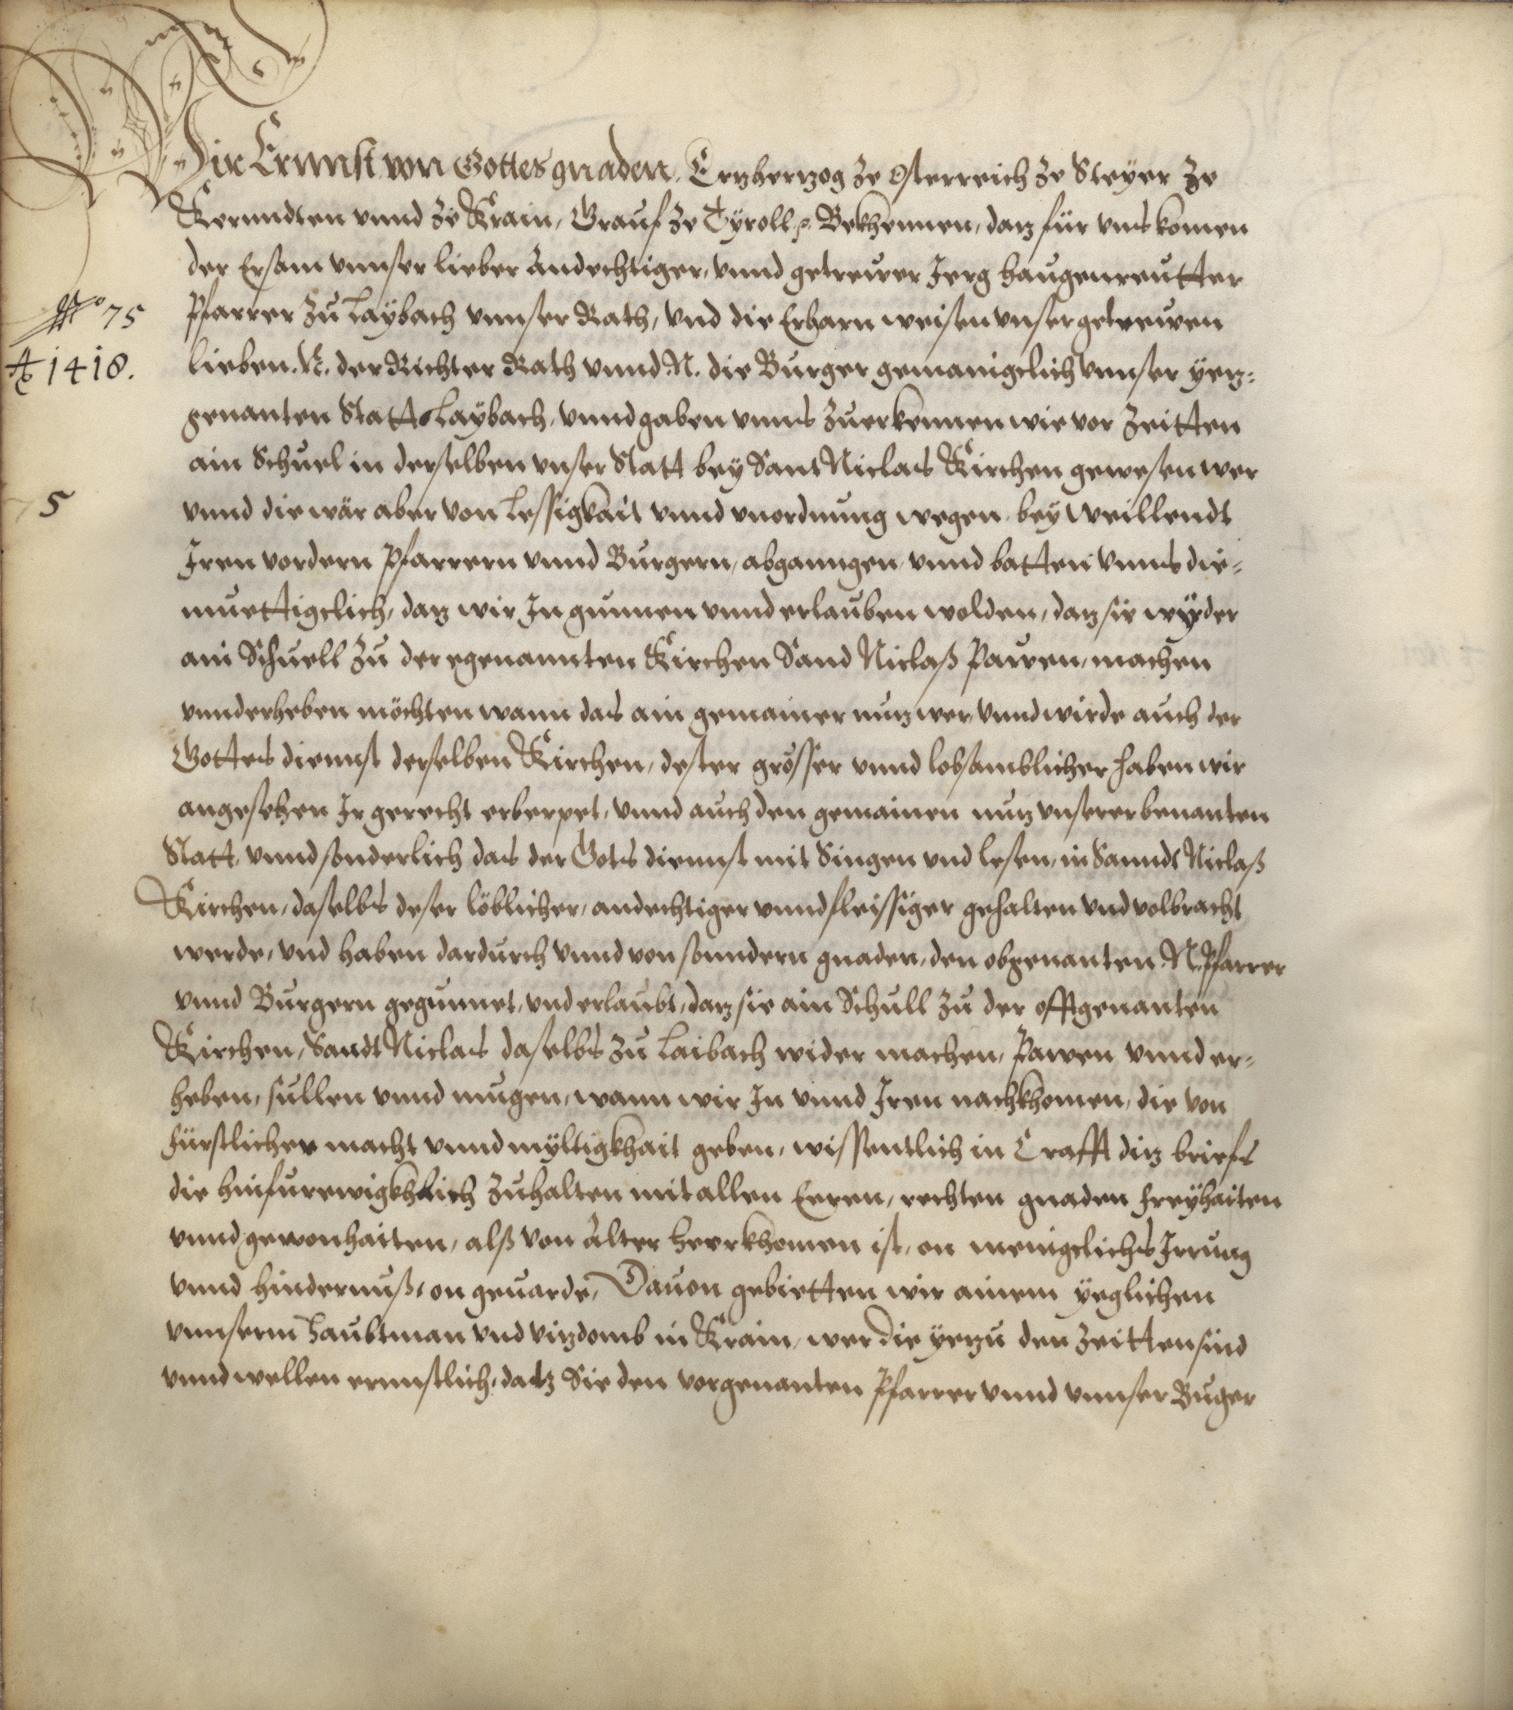 Wir Ernnst von Gottes gnaden, Ertzhertzog ze Osterreich ze Steyer ze
Kerundten vnnd ze Krain, Grauf ze Tyroll ꝛc. Bekhennen, datz für vns komen
der Ersam vnnser lieber Andechtiger, vnnd getrewer Jerg Haugenreutter
No 75
Pfarrer zu Laybach vnnser Rath, vnd die Erbarn weisen vnser getrewen
Ao 1418.
lieben. N. der Richter Rath vnnd N. die Burger gemainigclich vnnser yetz-
genanten Statt Laybach, vnnd gaben vnns zuerkennen wie vor Zeitten
ain Schuel in derselben vnser Statt bey Sant Niclas Kirchen gewesen wer
5
vnnd die wär aber von Lessigkait vnnd vnordnung wegen bey weillendt
Iren vordern Pfarrern vnnd Burgern, abganngen, vnnd batten vnns die-
muettigclich, datz wir In gunnen vnnd erlauben wolden, datz sie wyder
ain Schuell zu der egenannten Kirchen Sand Niclaß Pawen, machen
vnnd erheben möchten wann das ain gemainer nutz wer, vnnd wirde auch der
Gottes diennst derselben Kirchen, dester grösser vnnd lobsamblicher haben wir
angesehen Ir gerecht erber pet, vnnd auch den gemainen nutz vnserer benanten
Statt, vnnd sonderlich das der Gots diennst mit Singen vnd lesen, in Sanndt Niclaß
Kirchen, daselbs dester löblicher, andechtiger vnnd fleissiger gehalten vnd volbracht
werde, vnd haben dardurch vnnd von sonndern gnaden, den obgenanten N. Pfarrer
vnnd Burgern gegunnet, vnd erlaubt, datz sie ain Schull zu der offtgenanten
Kirchen, Sandt Niclas daselbs zu Laibach wider machen, Pawen vnnd er-
heben, sullen vnnd mugen, wann wir In vnnd Iren nachkhomen, die von
fürstlicher macht vnnd myltigkhait geben, wissentlich in Crafft ditz briefs
die hinfur ewigkhlich zuhalten mit allen Eeren, rechten gnaden freyhaiten
vnnd gewonhaiten, alß von Alter heerkhomen ist, on menigclichs Irrung
vnnd hindernuß, on geuarde, Dauon gebietten wir ainem yeglichen
vnnserm Haubtman vnd vitzdomb in Krain, wer die yetzu den Zeitten sind
vnnd wellen ernnstlich, datz Sie den vorgenanten Pfarrer vnnd vnnser Buger